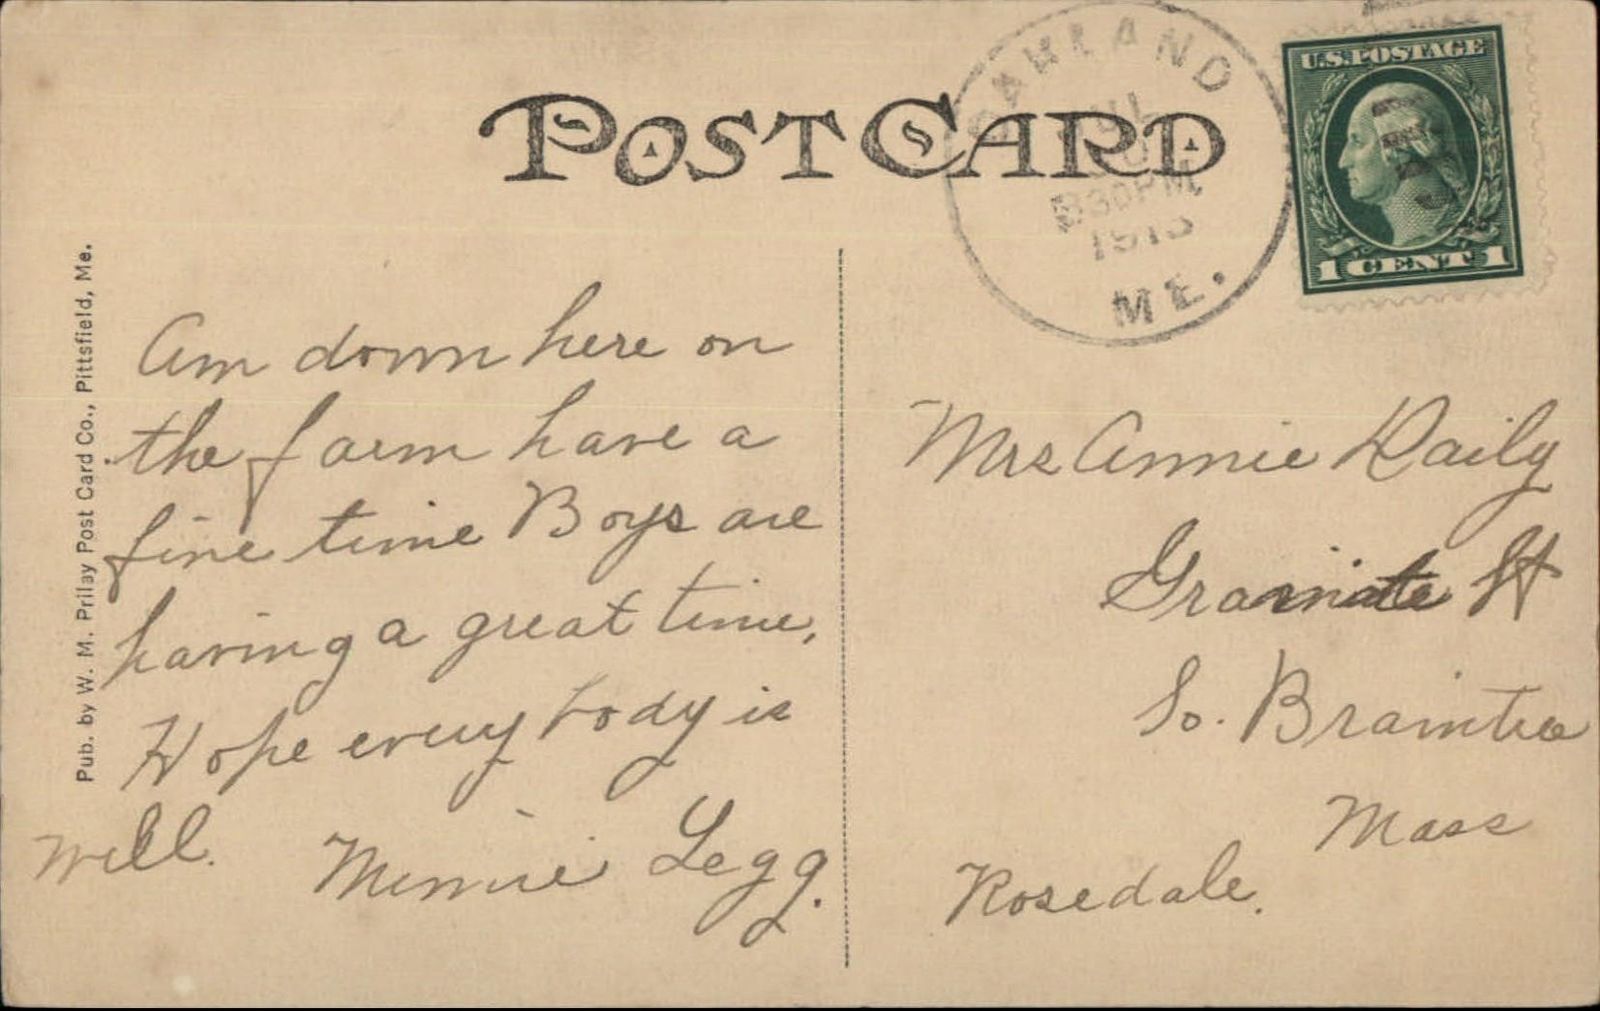 POST CARD
OAKLAND
JUL
30PM
ME.
U.S. POSTAGE
1 CENT 1
Pub. by W. M. Prilay Post Card Co., Pittsfield, Me.
Am down here on
the farm have a
fine time Boys are
having a great time,
Hope every body is
well.
Minnie Legg.
Mrs Annie Daily
Granite St
So. Braintree
Mass
Rosedale.